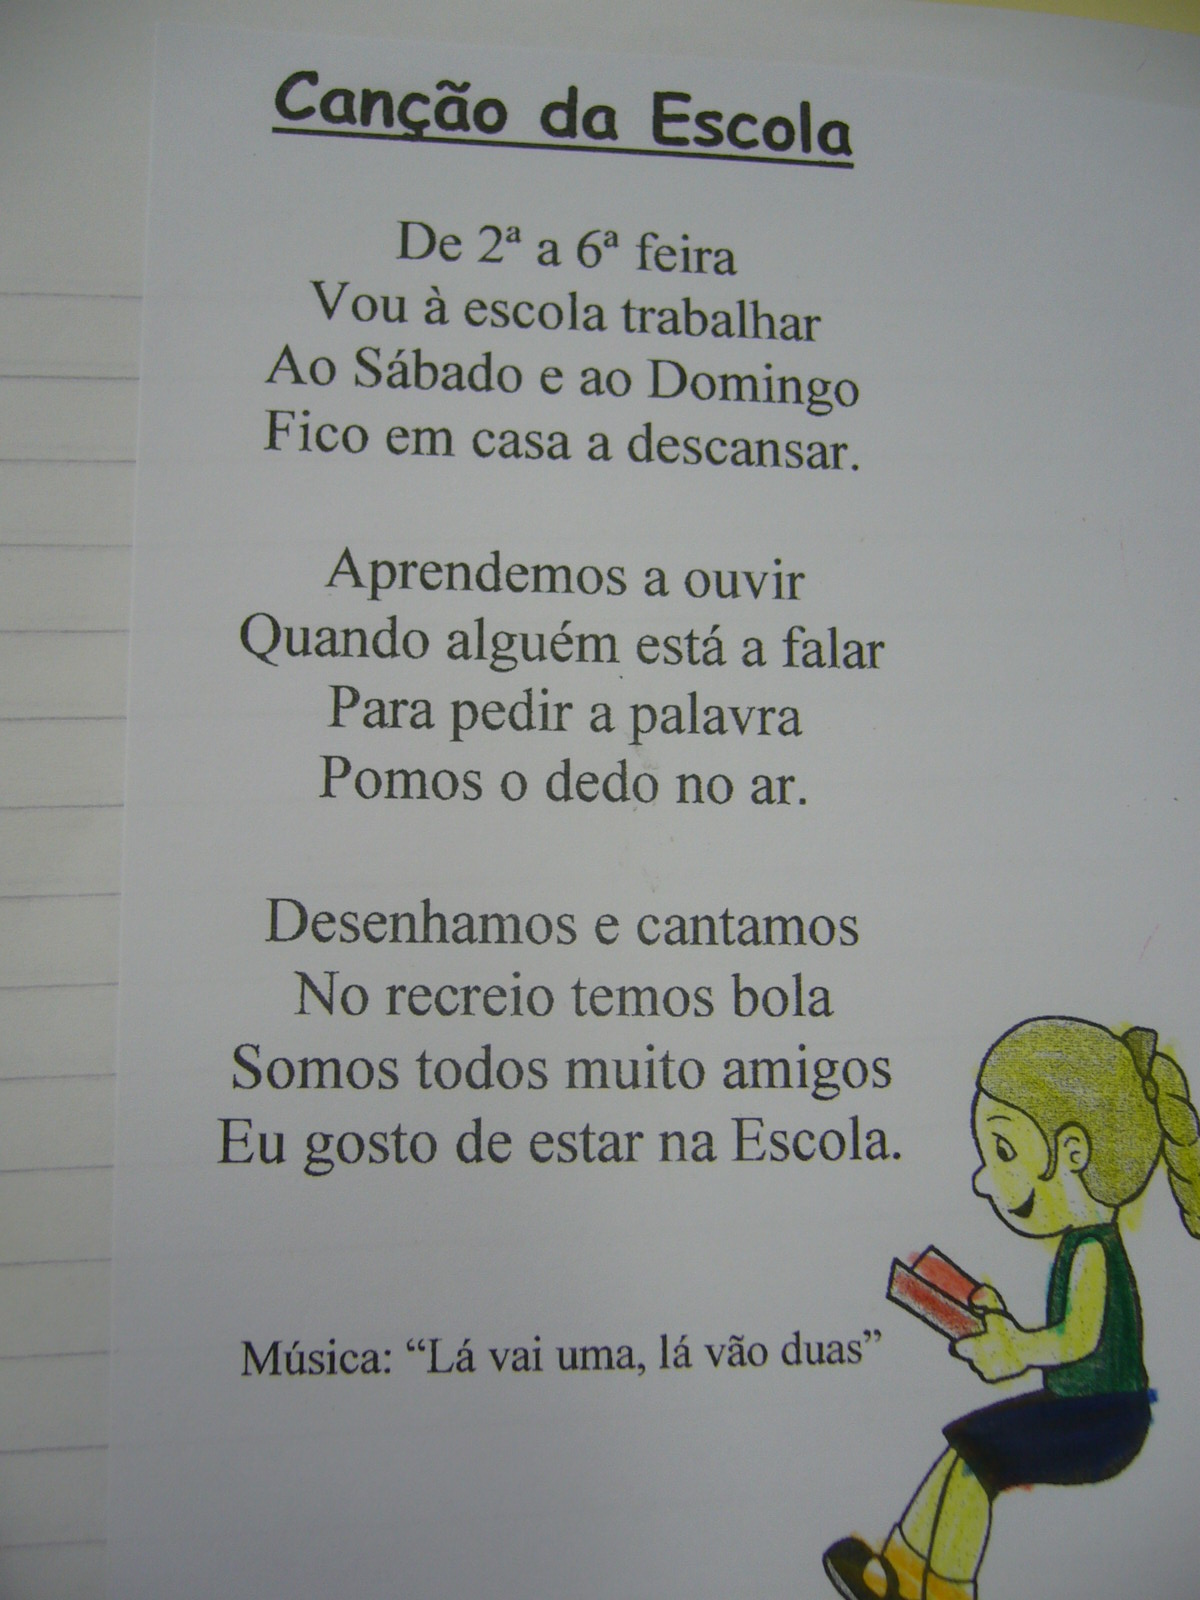 Canção da Escola
De 2ª a 6ª feira
Vou à escola trabalhar
Ao Sábado e ao Domingo
Fico em casa a descansar.
Aprendemos a ouvir
Quando alguém está a falar
Para pedir a palavra
Pomos o dedo no ar.
Desenhamos e cantamos
No recreio temos bola
Somos todos muito amigos
Eu gosto de estar na Escola.
Música: “Lá vai uma, lá vão duas”